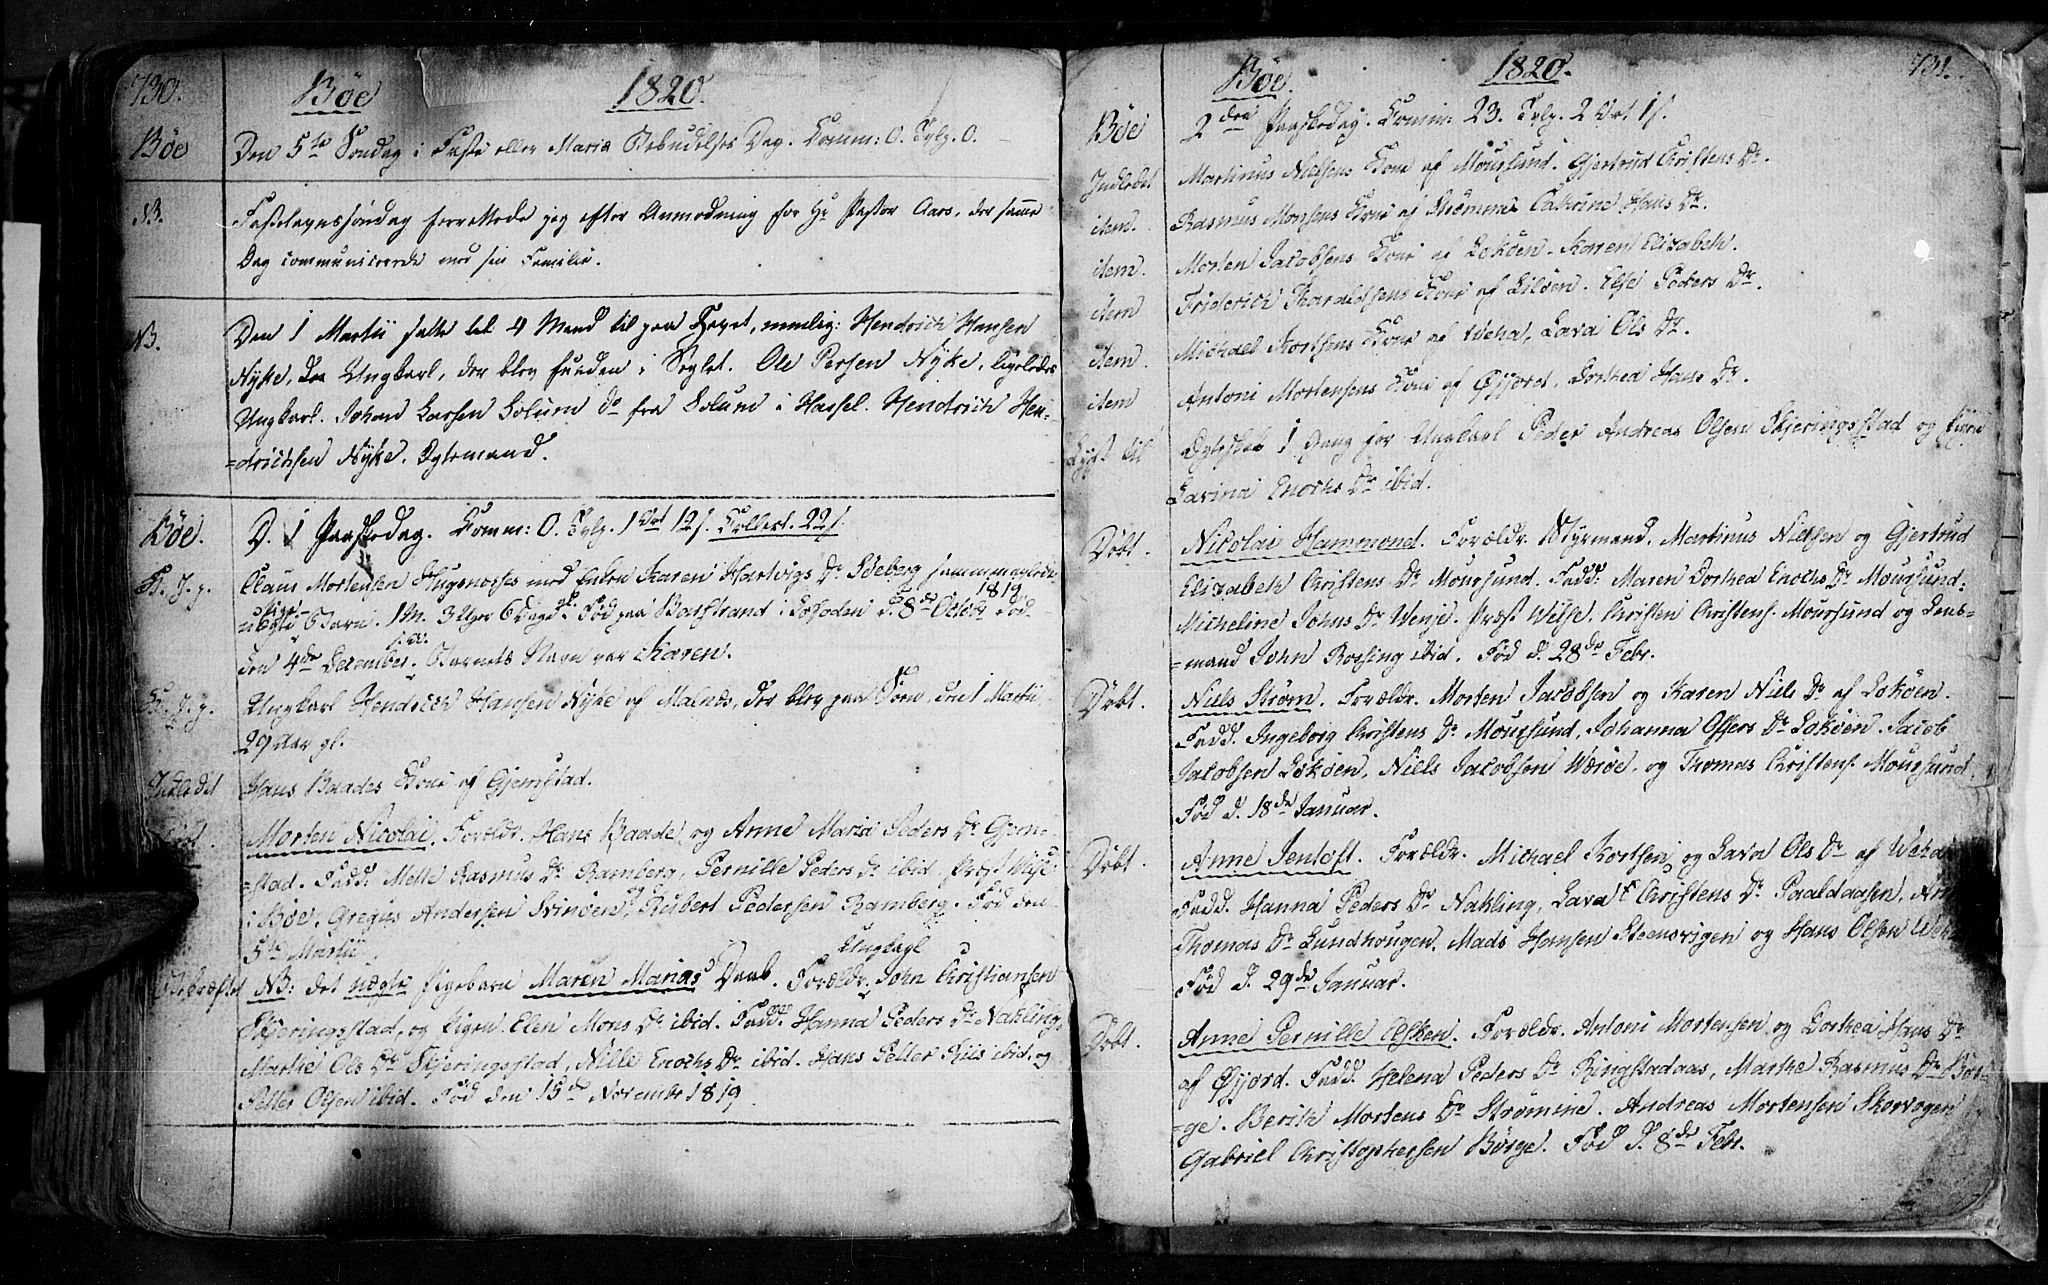 730.
Böe
1820.
Böe
Den 5te Söndag i Faste eller Mariæ Bebudelses Dag. Comm: 0. Tvlg. 0.
NB.
Fastelavnssöndag forrettede jeg efter Anmodning for Hr Pastor Aars, der samme
Dag communicerede med sin Familie.
NB.
Den 1 Martii satte til 4 Mand til paa Havet, nemlig: Hendrich Hansen
Nyke, Ungkarl, der blev funden i Seglet. Ole Persen Nyke, ligeledes
Ungkarl. Johan Larsen Solum do fra Solum i Hassel. Hendrich Hen-
=drichsen Nyke, Egtemand.
Böe.
D. 1 Paaskedag. Comm: 0. Tvlg. 1 Ort 12 s. Collect. 22 s.
B. J. p.
Claus Mortensen Hugsnoses med Enken Karen Hartvigs Dr Söeberg sammenavlede
uægte Barn. 1 M. 3 Uger 6 Dage gl. Fød paa Barstrand i Lofoden d. 8de Octobr 1819. Død
den 4de December s. A. Barnets Navn var Karen.
B. J. p.
Ungkarl Hendrich Hansen Nyke af Malnes, der blev paa Söen den 1 Martii,
29 Aar gl.
Indledet
Hans Baades Kone af Gjernstad.
Döbt.
Morten Nicolai. Forældr. Hans Baade og Anne Maria Peders Dr Gjern-
=stad. Fadd. Mette Rasmus Dr Ramberg, Pernille Peders Dr ibid. Præst Wilse
i Böe. Gregus Andersen Svinöen og Rubert Pedersen Ramberg. Fød den
5te Martii.
Bekræftet
NB: det uægte Pigebarn Maren Marias Daab. Forældr. Ungkarl John Christiansen
Skjeringsstad, og Pigen Elen Mons Dr ibid. Fadd. Hanna Peders Dr Nakling,
Marthe Ols Dr Skjeringsstad, Nille Enochs Dr ibid. Hans Petter Riis ibid. og
Petter Olsen ibid. Fød den 15de November 1819.
731.
Böe.
1820.
Böe
2den Paaskedag. Comm: 23. Tvlg. 2 Ort 1 s.
Indledet
Martinus Nielsens Kone af Moursund. Gjertrud Christens Dr.
item.
Rasmus Monsens Kone af Strömme Cathrine Hans Dr.
item.
Morten Jacobsens Kone af Loköen. Karen Elizabeth.
item
Friderich Haraldsens Kone af Lilöen. Else Peders Dr.
item.
Michael Kortsens Kone af Weha, Lava Ols Dr.
item
Antoni Mortensens Kone af Øjjord, Dorthea Hans Dr.
Lyst til
Egteskab 1 Gang for Ungkarl Peder Andreas Olsen Skjeringsstad og Pigen
Lavina Enochs Dr ibid.
Döbt.
Nicolai Hammond. Forældr. Styrmand. Martinus Nielsen og Gjertrud
Elizabeth Christens Dr Moursund. Fadd: Maren Dorthea Enochs Dr Moursund.
Micheline Johns Dr Wenje. Præst Wilse. Christen Christens. Moursund og Lens-
=mand John Rossing ibid. Fød d. 28de Febr.
Döbt.
Niels Ström. Forældr. Morten Jacobsen og Karen Niels Dr af Loköen.
Fadd. Ingeborg Christens Dr Moursund, Johanna Offers Dr Loköen. Jacob
Jacobsen Loköen, Niels Jacobsen Weröe, og Thomas Christens. Moursund.
Fød d. 18de Januar.
Döbt
Anne Jentoft. Forældr. Michael Kortsen og Lava Ols Dr af Weha
Fadd. Hanna Peders Dr Nakling, Lava Christens Dr Paaldaasen,
Thomas Dr Lundhougen. Mads Hansen Steensvigen og Hans Olsen
Fød d. 29de Januar.
Döbt.
Anne Pernille Esken. Forældr. Antoni Mortensen og Dorthea Hans Dr
af Øjjord. Fadd. Helena Peders Dr Ringstadaas, Marthe Rasmus Dr Bör-
=ge. Berith Mortens Dr Strömme. Andreas Mortensen Skorvogen
Gabriel Christophersen Börge. Fød d. 8de Febr.